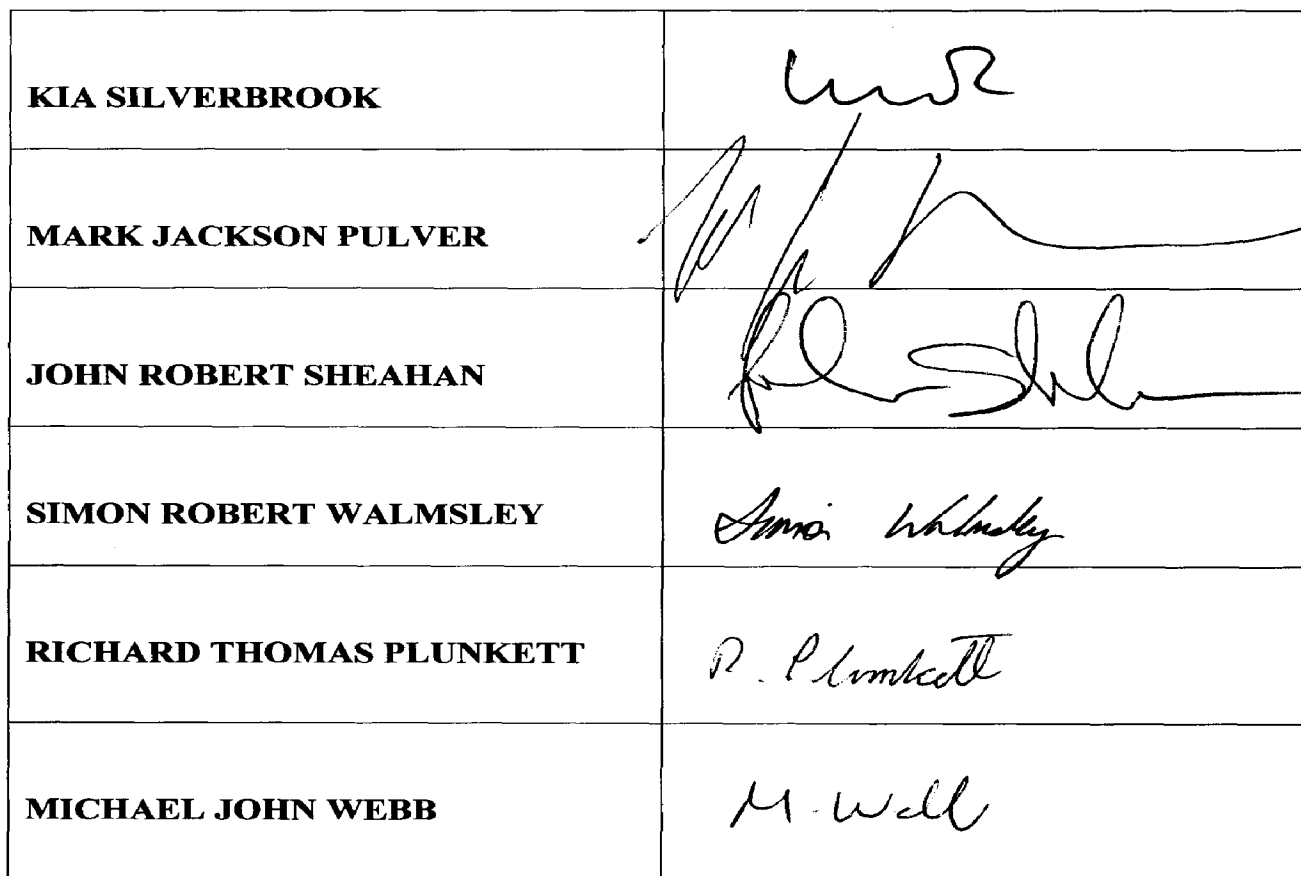 KIA SILVERBROOK
MARK JACKSON PULVER
JOHN ROBERT SHEAHAN
SIMON ROBERT WALMSLEY
Simon Walmsley
RICHARD THOMAS PLUNKETT
R. Plunkett
MICHAEL JOHN WEBB
M. Webb